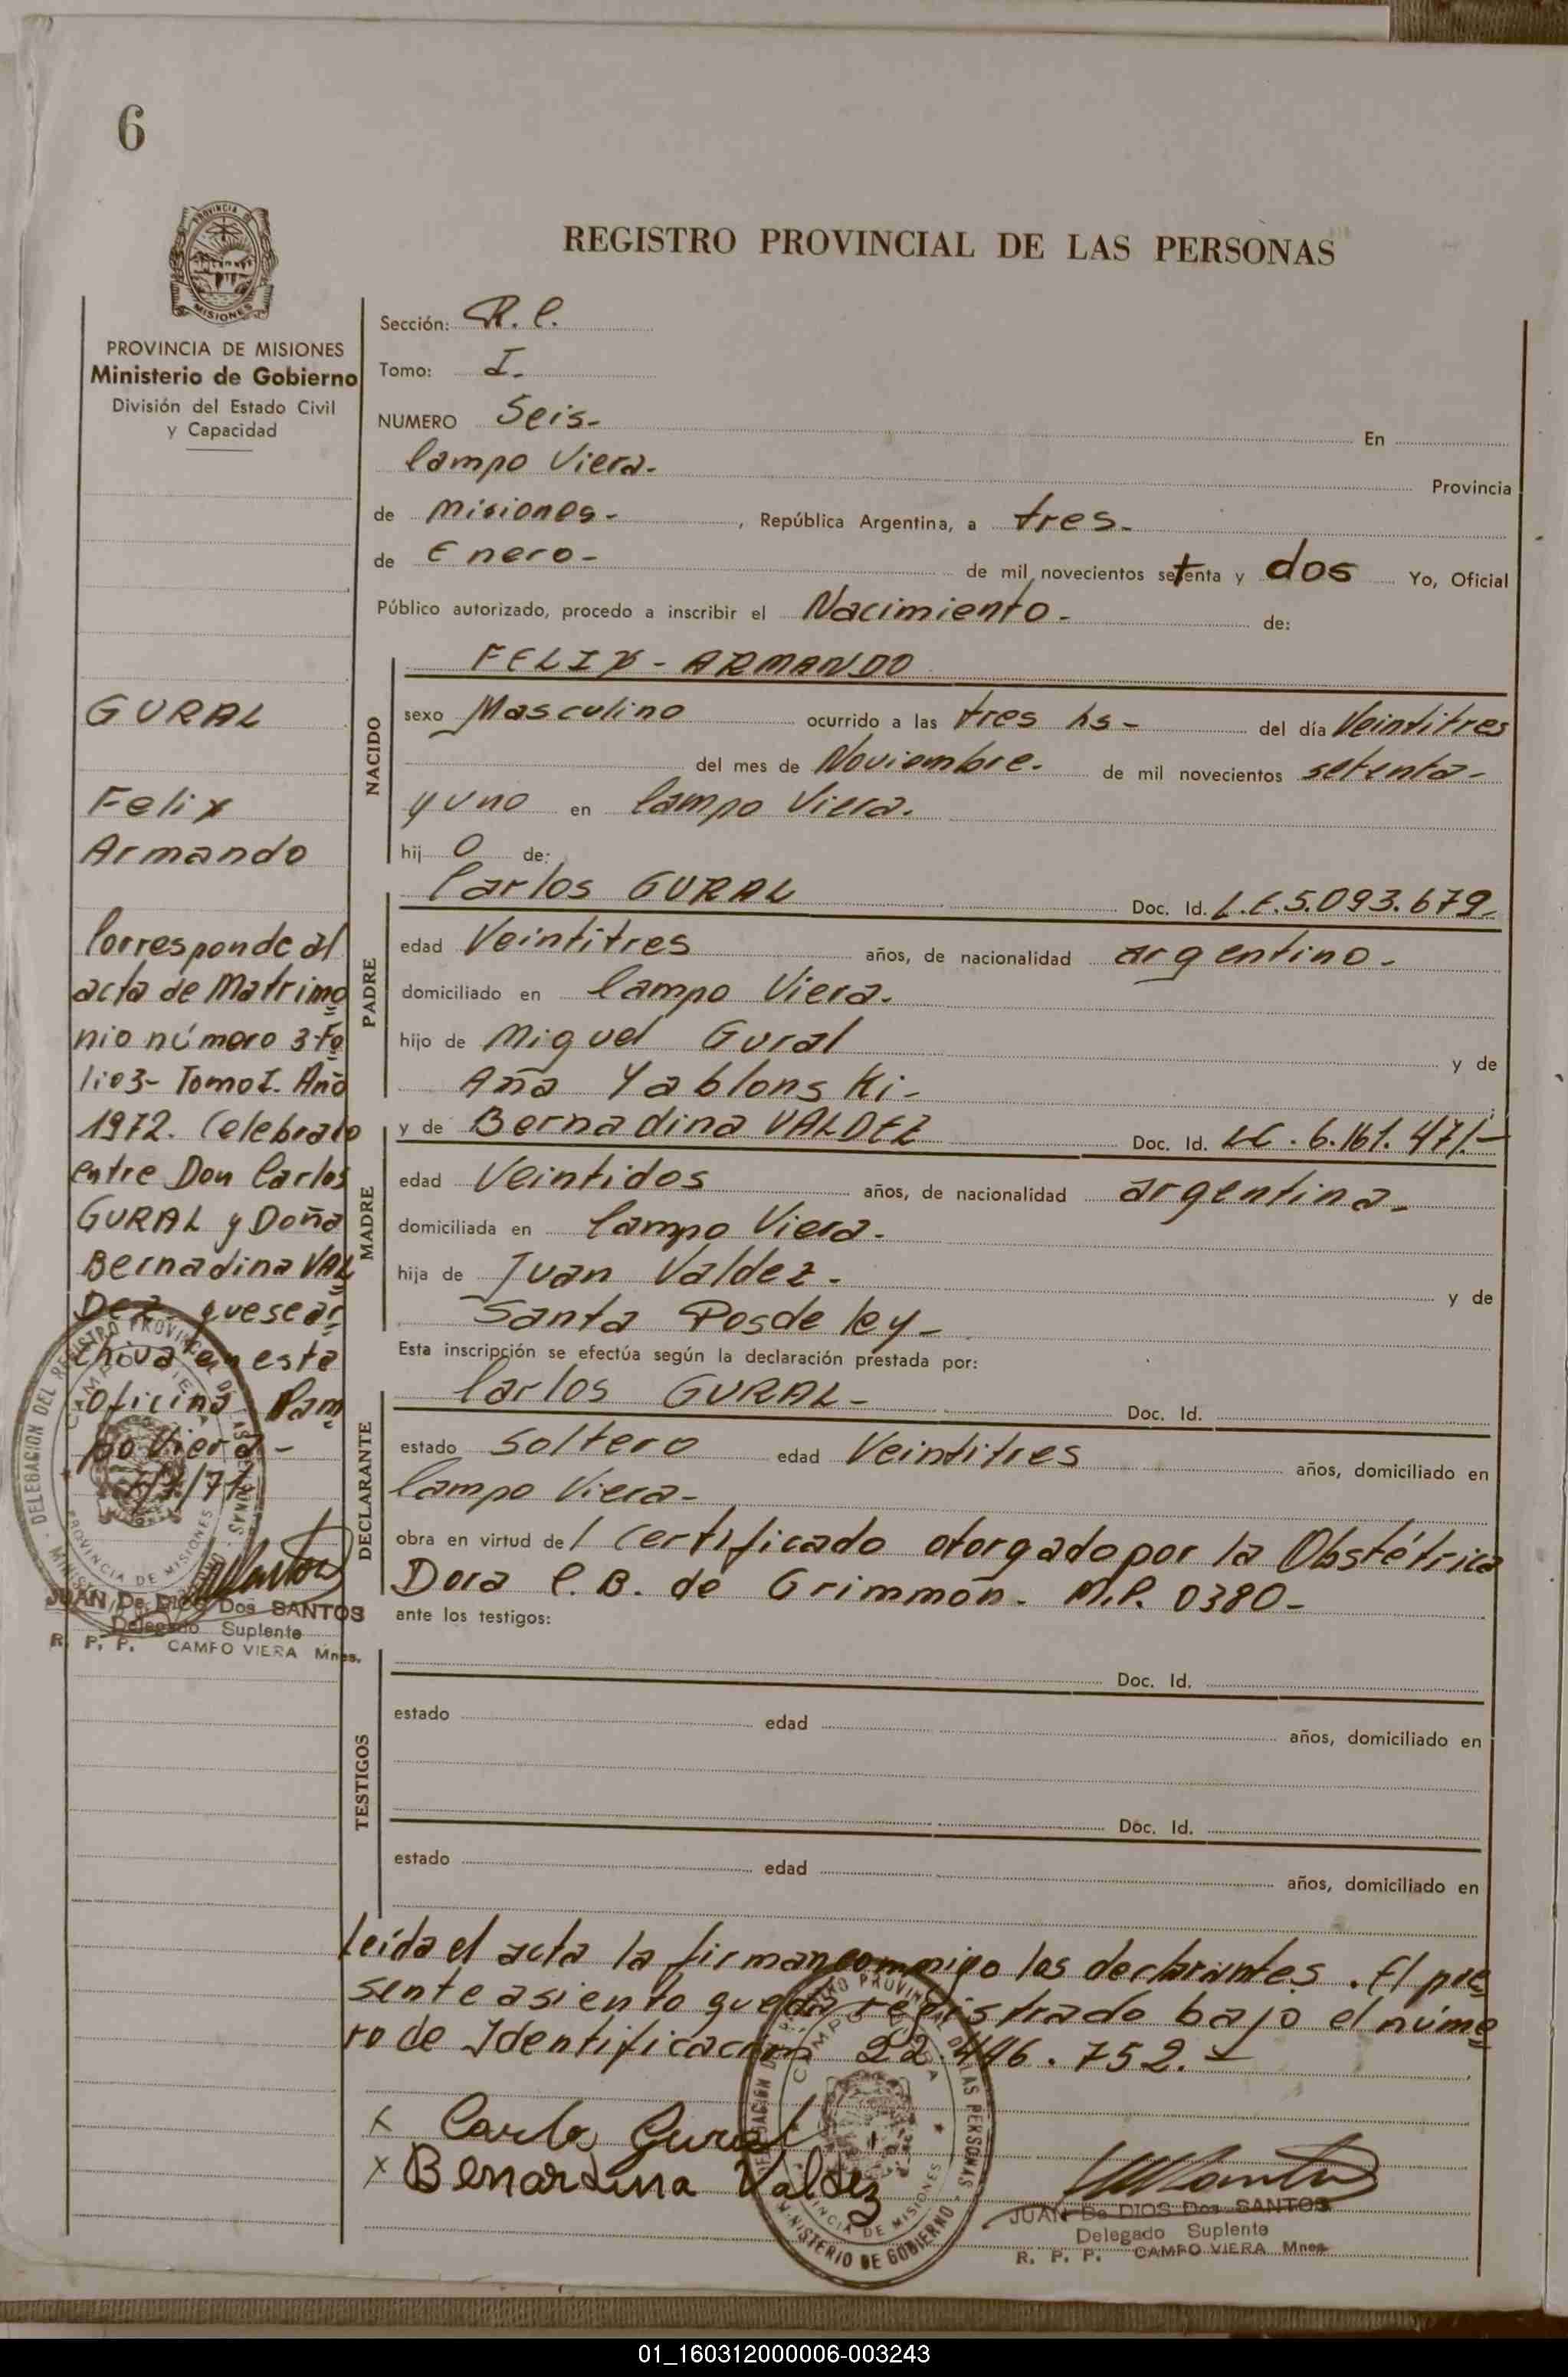 6
PROVINCIA
MISIONES
REGISTRO PROVINCIAL DE LAS PERSONAS
PROVINCIA DE MISIONES
Ministerio de Gobierno
División del Estado Civil
y Capacidad
GURAL
Felix
Armando
Corresponde al
acta de Matrimo
nio número 3-Fo
lio3- Tomo I. Año
1972. Celebrado
entre Don Carlos
GURAL y Doña
Bernadina VAL
DEZ que se ar
chiva en esta
Oficina Cam
po Viera-
JUAN De DIOS Dos SANTOS
Delegado Suplente
R. P. P. CAMPO VIERA Mnes.
Sección: R.C.
Tomo: I.
NUMERO Seis- En
Campo Viera- Provincia
de Misiones- , República Argentina, a tres-
de Enero- de mil novecientos setenta y dos Yo, Oficial
Público autorizado, procedo a inscribir el Nacimiento- de:
NACIDO
FELIX - ARMANDO
sexo Masculino ocurrido a las tres hs- del día Veintitres
del mes de Noviembre. de mil novecientos setenta-
y uno en Campo Viera.
hij o de:
PADRE
Carlos GURAL Doc. Id. L.E.5.093.679-
edad Veintitres años, de nacionalidad argentino-
domiciliado en Campo Viera.
hijo de Miguel Gural y de
Aña Yablonski-
MADRE
y de Bernadina VALDEZ Doc. Id. LC. 6.161.471.-
edad Veintidos años, de nacionalidad argentina-
domiciliada en Campo Viera-
hija de Juan Valdez- y de
Santa Posdeley-
Esta inscripción se efectúa según la declaración prestada por:
DECLARANTE
Carlos GURAL- Doc. Id.
estado soltero edad Veintitres años, domiciliado en
Campo Viera-
obra en virtud de l Certificado otorgado por la Obstétrica
Dora C.B. de Grimmon. M.P. 0380-
ante los testigos:
TESTIGOS
Doc. Id.
estado edad años, domiciliado en
Doc. Id.
estado edad años, domiciliado en
Leída el acta la firman conmigo los declarantes. El pre
sente asiento queda registrado bajo el núme
ro de Identificación 22.446.752.-
x Carlos Gural
x Benardina Valdez
DELEGACION DEL REGISTRO PROVINCIAL DE LAS PERSONAS
CAMPO VIERA
PROVINCIA DE MISIONES
MINISTERIO DE GOBIERNO
JUAN De DIOS Dos SANTOS
Delegado Suplente
R. P. P. CAMPO VIERA Mnes
01_160312000006-003243